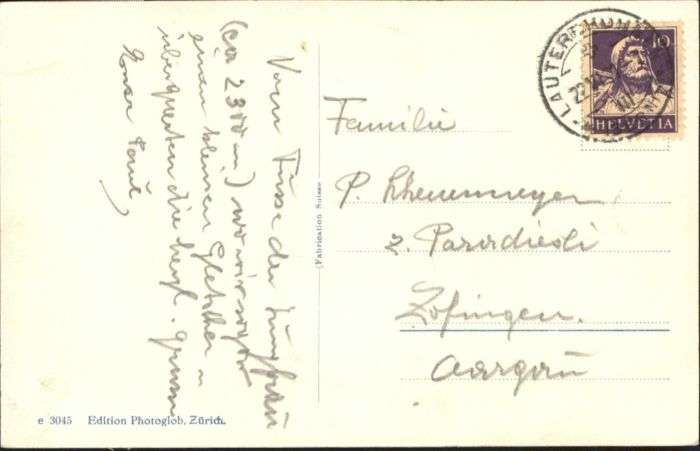 Vom Fusse der Jungfrau
(ca 2300 m) wo wir sogar
einen kleinen Gletscher
überquerten die herzl. Grüsse
Euer Paul
(Fabrication Suisse
Familie
P.
z. Paradiesli
Zofingen.
Aargau
10
HELVETIA
LAUTERBRUNNEN
e 3045 Edition Photoglob, Zürich.